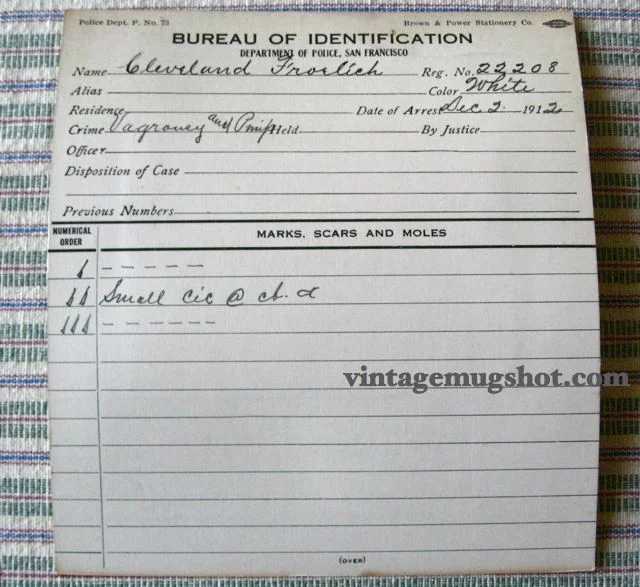 Police Dept. P. No. 73 Brown & Power Stationery Co.
BUREAU OF IDENTIFICATION
DEPARTMENT OF POLICE, SAN FRANCISCO
Name Cleveland Froelich Reg. No. 22208
Alias Color White
Residence Date of Arrest Dec 2 1912
Crime Vagrancy and Pimp Held By Justice
Officer
Disposition of Case
Previous Numbers
NUMERICAL ORDER MARKS, SCARS AND MOLES
I - - - - -
II Small cic @ ch.
III - - - - - -
vintagemugshot.com
(OVER)